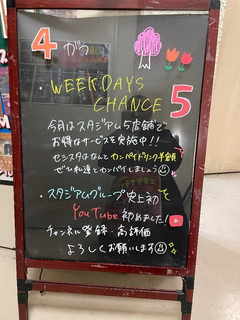 4がつ
・WEEKDAYS
CHANCE
5
今月はスタジアム5店舗で
お得なサービスを実施中!!
センスタはなんとカンパイドリンク半額
ぜひ私達とカンパイしましょう
・スタジアムグループ史上初
YouTube 初めました!
チャンネル登録・高評価
よろしくお願いします